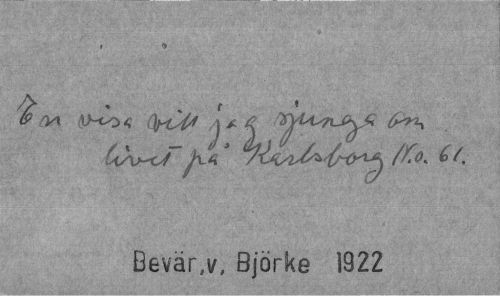 En visa vill jag sjunga om
livet på Karlsborg No. 61.
Bevär,v, Björke 1922